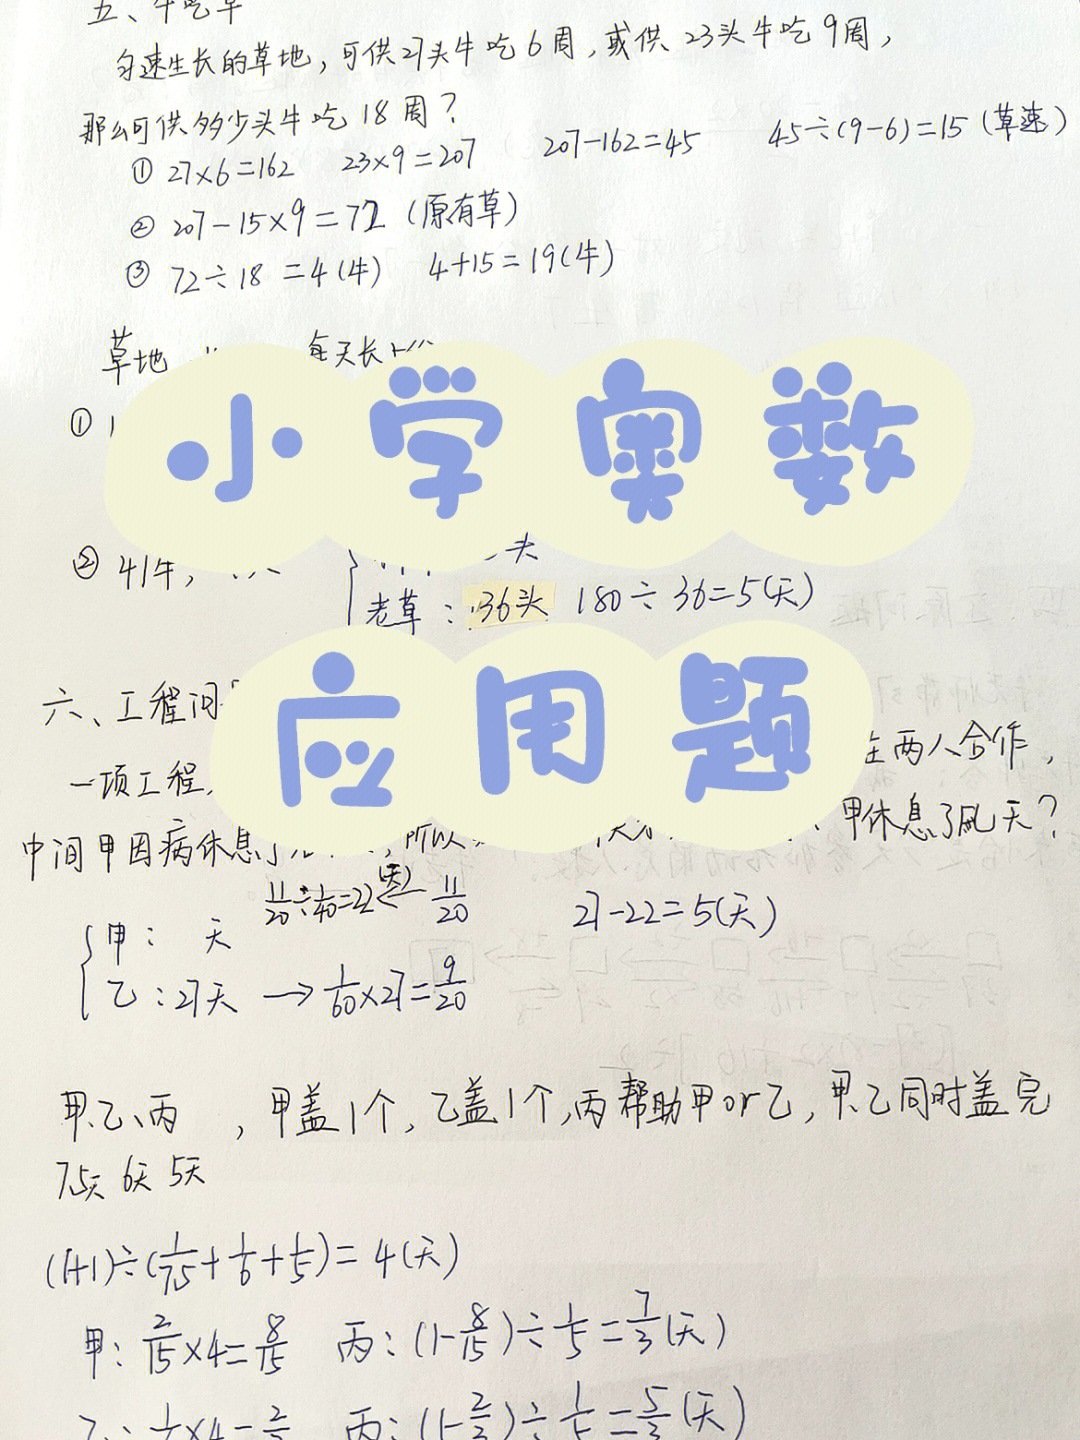 五、牛吃草
匀速生长的草地，可供27头牛吃6周，或供23头牛吃9周，
那么可供多少头牛吃18周？
① 27×6=162 23×9=207 207-162=45 45÷(9-6)=15（草速）
② 207-15×9=72（原有草）
③ 72÷18=4(牛) 4+15=19(牛)
草地 每天长
①
小学奥数
② 41牛， 头
老草：36头 180÷36=5(天)
应用题
六、工程问
一项工程， 两人合作，
中间甲因病休息了 ，所以 甲休息了几天？
11/20÷1/40=22(天)← 11/20 27-22=5(天)
甲： 天
乙：27天 → 1/60×27=9/20
甲、乙、丙 ，甲盖1个，乙盖1个，丙帮助甲or乙，甲、乙同时盖完
7.5天 6天 5天
(1+1)÷(1/7.5+1/6+1/5)=4(天)
甲：2/15×4=8/15 丙：(1-8/15)÷1/5=7/3(天)
乙： ×4= 丙：(1-2/3)÷1/5=5/3(天)